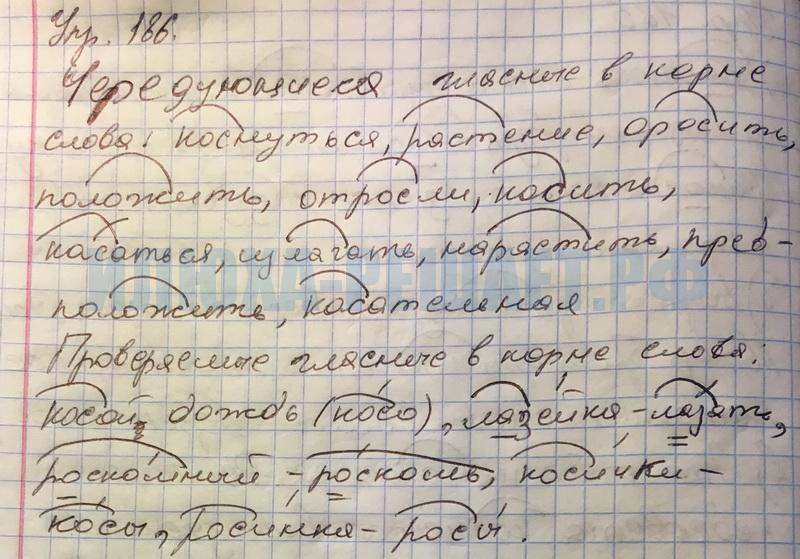 Упр. 186.
Чередующиеся гласные в корне
слова: коснуться, растение, оросить,
положить, отросли, косить,
касаться, излагать, нарастить, пред-
положить, касательная
ИЛЮХА-РЕШАЕТ.РФ
Проверяемые гласные в корне слова:
косой дождь (косо), лазейка - лазать,
роскошный - роскошь, косички -
косы, росинка - росы.